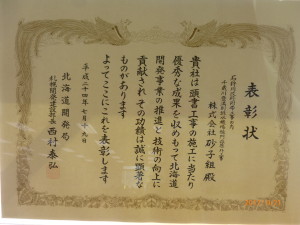 表彰状
株式会社 砂子組 殿
貴社は頭書工事の施工に当たり
優秀な成果を収めもって北海道
開発事業の推進と技術の向上に
貢献されその功績は誠に顕著な
ものがあります
よってここにこれを表彰します
平成二十四年七月十九日
北海道開発局
札幌開発建設部長 西村泰弘